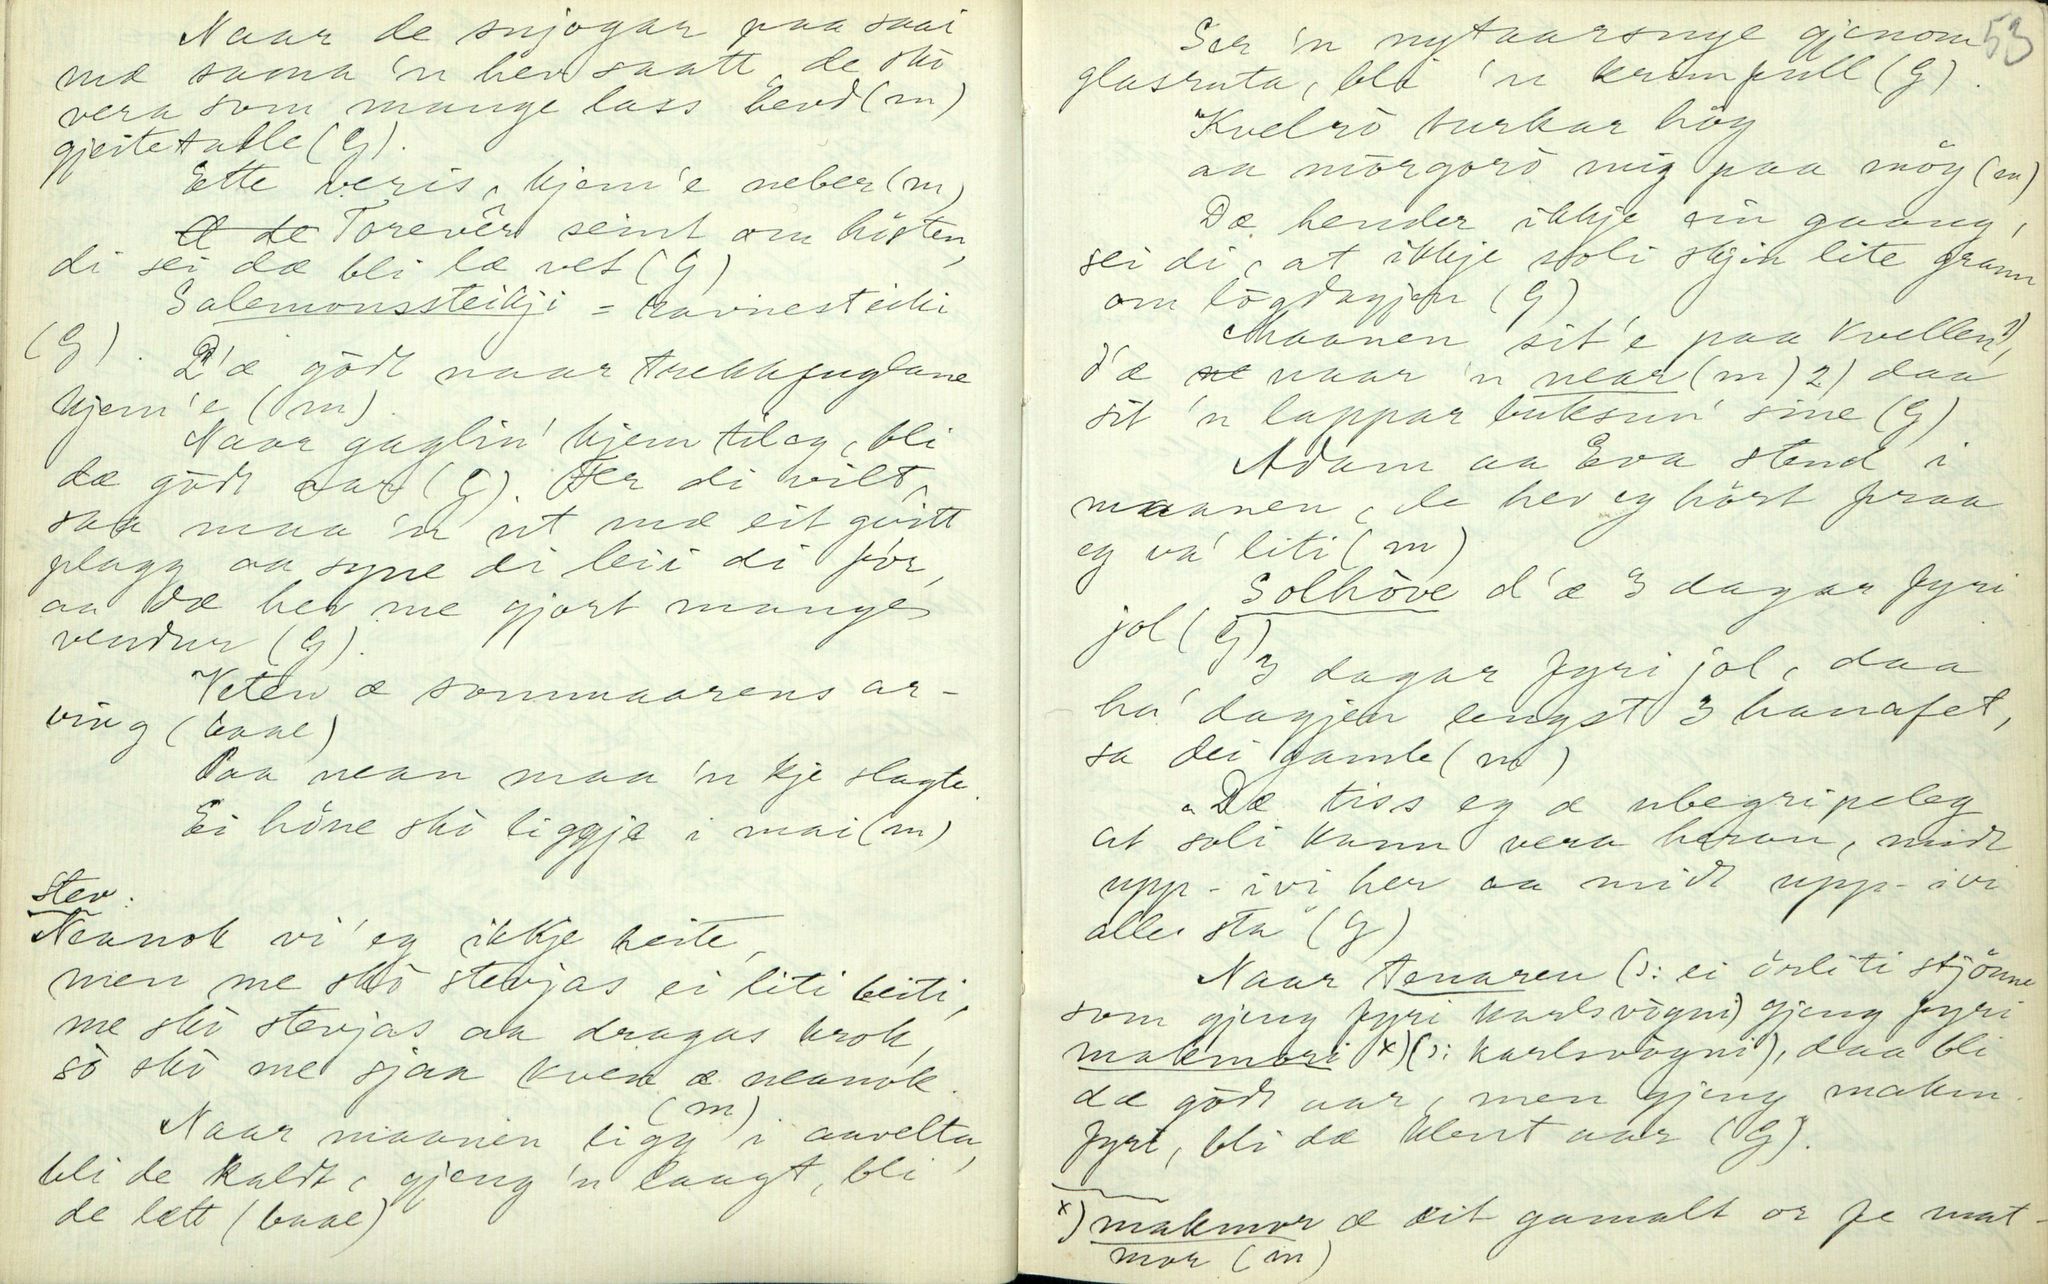 Naar de snjogar paa saai
mæ soma 'n hev saatt, de sko
vera som mange lass hevd (m)
gjeitetalle (G).
Ette veris, kjem'e neber (m)
Æ de Torevêr seint om hösten,
di sei dæ bli læ vet (G)
Salemonssteikji = ravnesteiki
(G).
D'æ gödt naar trekkfuglane
kjem'e (m).
Naar gaglin' kjem tileg, bli
dæ gödt aar (G). Fer di vilt,
saa maa 'n ut mæ eit qvitt
plagg aa syne di leii di för,
aa dæ hev me gjort mange
vendur (G).
Veten æ sommaarens ar-
ving (baae)
Paa nean maa 'n kje slagte.
Ei höne sko liggje i mai (m)
Stev:
Neanok vi' eg ikkje heite,
men me sko stevjas ei liti beiti,
me sko stevjas aa dragas krok,
so sko me sjaa kven æ neanok.
(m)
Naar maanen ligg i aavelta,
bli de kaldt, gjeng 'n laagt, bli
de lett (baae)
53
Ser 'n nytaarsnye gjenom
glasruta, bli 'n krimfull (G).
Kvelro turkar höy
aa morgoro mig paa möy (m)
Dæ hender ikkje ein gaang,
sei di, at ikkje soli skjin lite grann
om lögdagjen (G)
Maanen sit'e paa kvellen 1),
d'æ ne naar 'n near (m) 2) daa
sit 'n lappar buksun' sine (G)
Adam aa Eva stend i
maanen, de hev eg hört fraa
eg va' liti (m)
Solhöve d'æ 3 dagar fyri
jol (G)
3 dagar fyri jol, daa
ha' dagjen lengst 3 hanafet,
sa dei gamle (m)
"Dæ tiss eg æ ubegripeleg
at soli kann vera heran, midt
upp-ivi her aa midt upp-ivi
alle sta" (G)
Naar tenaren (ɔ: ei örliti stjönne
som gjeng fyri karlsvogni) gjeng fyri
makmori x) (ɔ: karlsvogni), daa bli
dæ gödt aar, men gjeng makm.
fyri, bli dæ klent aar (G).
x) makmor æ eit gamalt or fe mat-
mor (m)